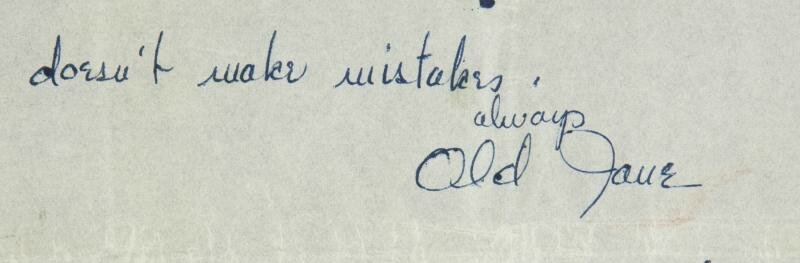 doesn't make mistakes.
always
Old Jane